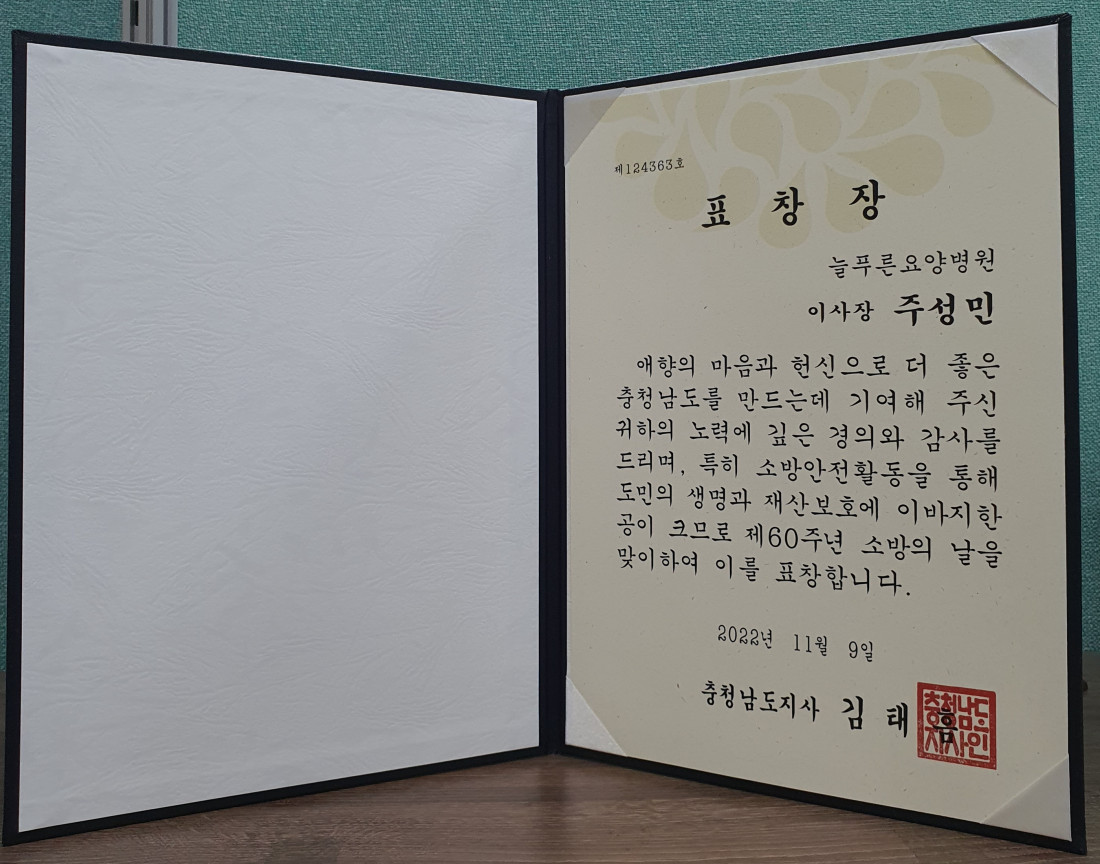 제124363호
표 창 장
늘푸른요양병원
이사장 주성민
애향의 마음과 헌신으로 더 좋은
충청남도를 만드는데 기여해 주신
귀하의 노력에 깊은 경의와 감사를
드리며, 특히 소방안전활동을 통해
도민의 생명과 재산보호에 이바지한
공이 크므로 제60주년 소방의 날을
맞이하여 이를 표창합니다.
2022년 11월 9일
충청남도지사 김 태 흠
충청남도
지사인